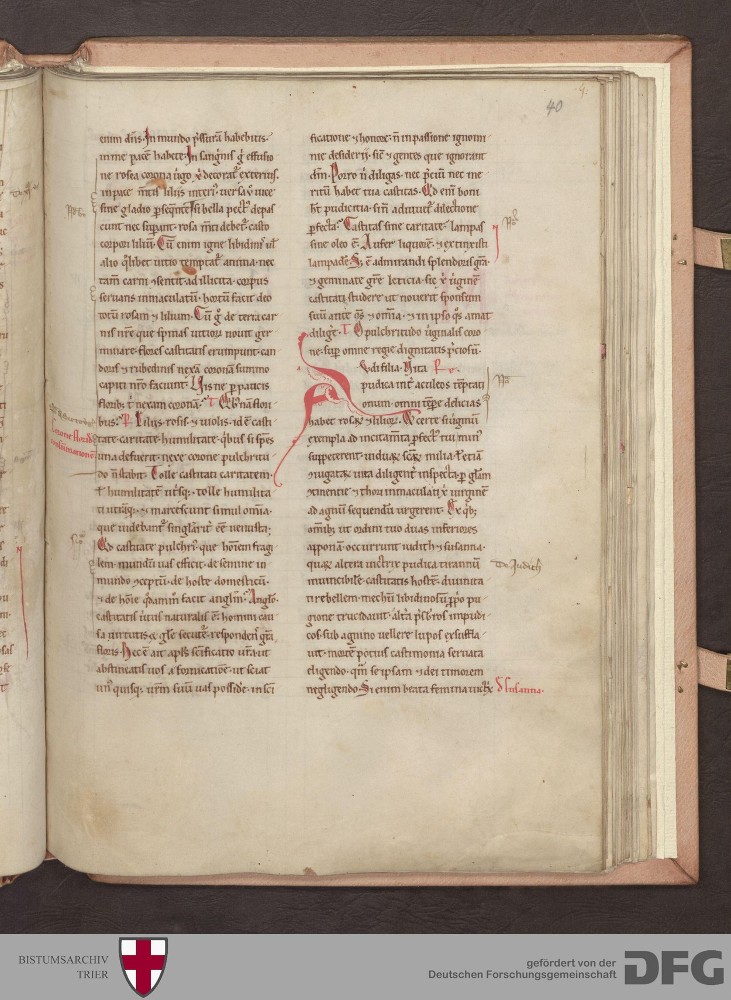 40
enim dn̄s. In mundo p̄ssurā habebitis.
in me pacē habete. In sang̾nis g̊ effusio
ne rosea corona ŭgo ⁊ decorat᷑ exterius.
in pace m̄tis liliis
fine gladio Tsi bella pect᷑ depas
cunt nec supant. rosa m̄ti debet᷑. casto
corpori liliū. Cū enim igne libidinis ul̓
alio q̊libet uitio temptat᷑ anima. nec
tam̄ carni ɔsentit ad illicita. corpus
seruans inmaculatū. hortū facit deo
totū rosam ⁊ lilium. Cū g̊ de terra car
nis nr̄e que spinas uitioꝝ nouit ger
minare. flores castitatis erumpunt. can
doris ⁊ rubedinis nexā coronā summo
capiti nr̄o faciunt. His ne p paucis
florib; t̓ nexam coronā. T. Q̊b; nā flori
bus. P. Liliis. rosis. ⁊ uiolis. id ē casti
tate. caritate. humilitate. q̊bus si spes
una defuerit. nexe corone pulchritu
do n̄ stabit. Tolle castitati caritatem.
t̓ humilitatē utriusq; tolle humilita
ti utrāq; ⁊ marescunt simul omīa.
que uidebant᷑ singlarit̓ eē uenusta;
Qd castitate pulchri᷑. que hoīem fragi
lem. mundū uas efficit. de semine in
mundo ɔceptū. de hoste domesticū.
⁊ de hoīe q̊dammͦ facit anglm̄. Angl̓e
castitatis uirtus naturalis ē. homini cau
sa uirtutis ⁊ gl̓e secut᷑e. respondens gr̄a
floris. Hec ē ait apl̓s sc̄ificatio ur̄a. ut
abstineatis uos a fornicatiōe. ut sciat
un᷑ quisq; ur̄m suū uas possidē. in sc̄i
ficatione ⁊ honore. n̄ in passione ignomi
nie desiderii. sic̄ ⁊ gentes que ignorant
dm̄. Porro n̄ diligas. nec p̄ciū nec me
ritū habet tua castitas. Qd eni boni
ht̄ pudicitia. si n̄ adiuuet᷑ dilectione
pfecta. Castitas sine caritate. lampas
sine oleo ē. Aufer liquorē. ⁊ extinxisti
lampadē. S; ē admirandi splendoris gr̄a.
⁊ geminate gr̄e leticia. sic xͥ uginē
castitati studere. ut nouerit sponsum
suū ante o᷑s ⁊ omīa. ⁊ in ipso q̊s amat
diligē. T. O pulchritudo uginalis coro
ne. sup omne regie dignitatis p̄ciosū.
Audi filia. Uita P.
pudica int̓ aculeos teptati
onum. omni tempe delicias
habet rosaꝝ ⁊ lilioꝝ. Certe si uginū
exempla ad incitamīta pfect᷑ tui min᷑
suppeterent. uiduaꝝ
⁊iugataꝝ uita diligent̓ inspecta. p gl̄am
ɔtinentie ⁊ thori inmaculati xͥ uirginē
ad agnū sequendū urgerent. Ex q̊b;
omīb; ut ordini tuo duas inferiores
apponā. occurrunt iudith ⁊ susanna.
quaꝝ altera uictrix pudica tirannū
inuincibilē. castitatis hostē. diuinita
ti rebellem. mechū libidinosū, pͦpo pu
gione trucidauit. alt̓a p̄sb̓ros impudi
cos. sub agnino uellere lupos exsuffla
uit. mortē potius castimonia seruata
eligendo. qm̄ se ipsam ⁊ dei timorem
negligendo. Si enim beata femina iudith
De Judith
d̓ Susanna.
BISTUMSARCHIV
TRIER
gefördert von der
Deutschen Forschungsgemeinschaft
DFG